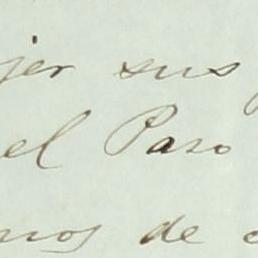 jer sus
el Paso
nos de